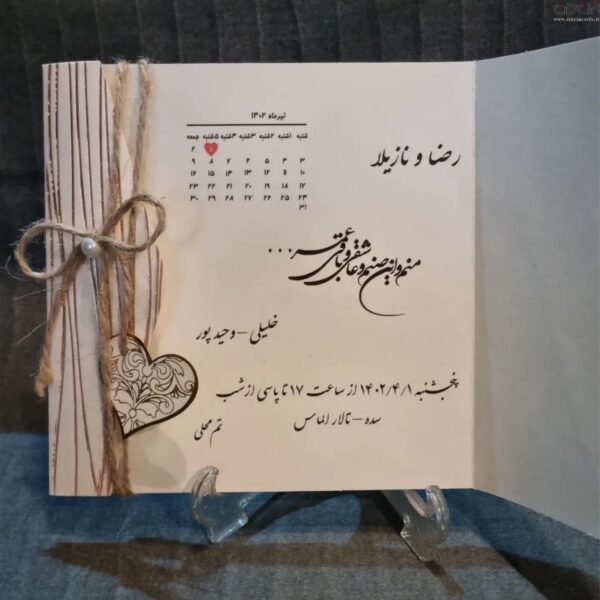 تیرماه ۱۴۰۲
شنبه ۱شنبه ۲شنبه ۳شنبه ۴شنبه ۵شنبه جمعه
۱ ۲
۳ ۴ ۵ ۶ ۷ ۸ ۹
۱۰ ۱۱ ۱۲ ۱۳ ۱۴ ۱۵ ۱۶
۱۷ ۱۸ ۱۹ ۲۰ ۲۱ ۲۲ ۲۳
۲۴ ۲۵ ۲۶ ۲۷ ۲۸ ۲۹ ۳۰
۳۱
رضا و نازیلا
منم و این صنم و عاشقی و باقی عمر ...
خلیلی - وحید پور
پنجشنبه ۱۴۰۲/۴/۱ از ساعت ۱۷ تا پاسی از شب
سده - تالار الماس
تم محلی